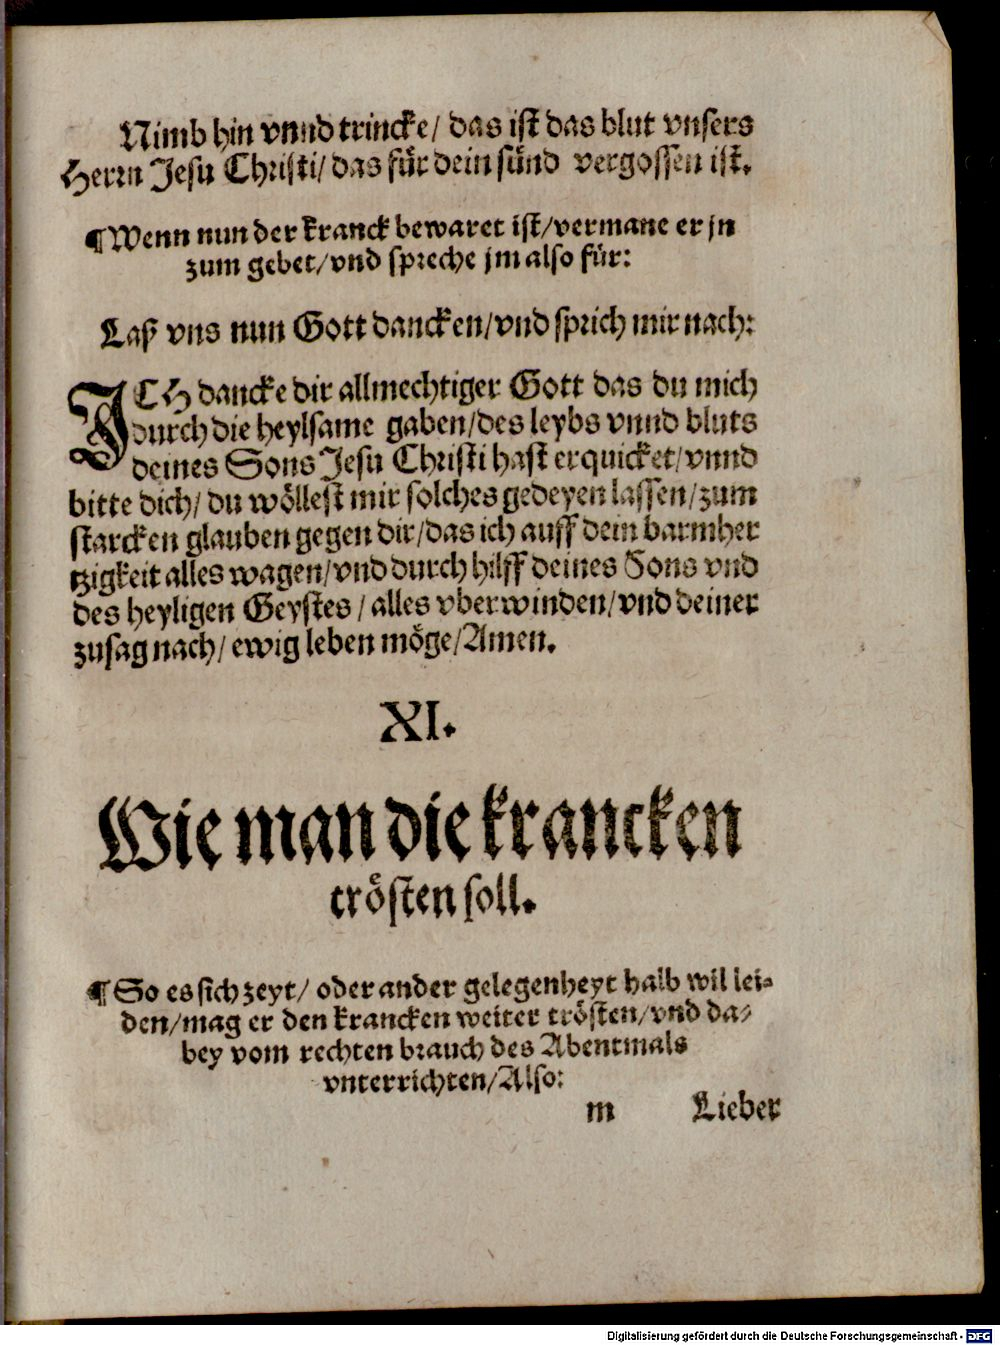 Nimb hin vnnd trincke/ das ist das blut vnsers
Herrn Jesu Christi/ das für dein sünd vergossen ist.
¶ Wenn nun der kranck bewaret ist/ vermane er jn
zum gebet/ vnd spreche jm also für:
Laß vns nun Gott dancken/ vnd sprich mir nach:
ICH dancke dir allmechtiger Gott das du mich
durch die heylsame gaben/ des leybs vnnd bluts
deines Sons Jesu Christi hast erquicket/ vnnd
bitte dich/ du wöllest mir solches gedeyen lassen/ zum
starcken glauben gegen dir/ das ich auff dein barmher
tzigkeit alles wagen/ vnd durch hilff deines Sons vnd
des heyligen Geystes/ alles vberwinden/ vnd deiner
zusag nach/ ewig leben möge/ Amen.
XI.
Wie man die krancken
trösten soll.
¶ So es sich zeyt/ oder ander gelegenheyt halb wil lei-
den/ mag er den krancken weiter trösten/ vnd da-
bey vom rechten brauch des Abentmals
vnterrichten/ Also:
m Lieber
Digitalisierung gefördert durch die Deutsche Forschungsgemeinschaft - DFG